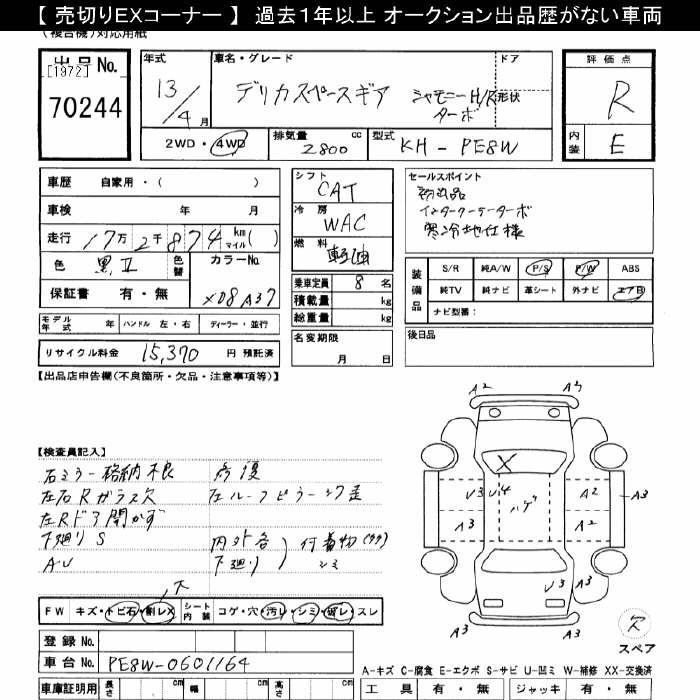 【 売切りEXコーナー 】 過去１年以上 オークション出品歴がない車両
(複合機)対応用紙
出品No. [1972] 70244
年式 13/4月
車名・グレード デリカスペースギア シャモニーH/R ターボ
ドア 形状
2WD・4WD
排気量 2800 cc
型式 KH-PE8W
評価点 R
内装 E
車歴 自家用・( )
車検 年 月
走行 17万2千874 km マイル( )
色 黒II 色替
カラーNo. X08A37
保証書 有・無
シフト CAT
冷房 WAC
燃料 軽油
乗車定員 8 名
積載量 kg
総重量 kg
名変期限 月 日
モデル年式 年 ハンドル 左・右 ディーラー・並行
リサイクル料金 15,370 円 預託済
セールスポイント
インタークーラーターボ
寒冷地仕様
装備品 S/R 純A/W P/S P/W ABS
純TV 純ナビ 革シート 外ナビ エアB
ナビ型番：
後日品
【出品店申告欄(不良箇所・欠品・注意事項等)】
【検査員記入】
右ミラー格納不良
左右Rガラス欠
左Rドア開かず
下廻りS
AU
修復
左ルーフピラー
内外各
下廻り
付着物
シミ
欠
FW キズ・トビ石・割レX シート内装 コゲ・穴・汚レ・シミ・破レ・スレ
登録No.
車台No. PE8W-0601164
車庫証明用 長さ cm 幅 cm 高さ cm
A2 A3
X
U3 U4 ハゲ A2 A3
A3 A3 A2
U3 A3
A3 A3
欠
スペア
A-キズ C-腐食 E-エクボ S-サビ U-凹ミ W-補修 XX-交換済
工具 有・無 ジャッキ 有・無